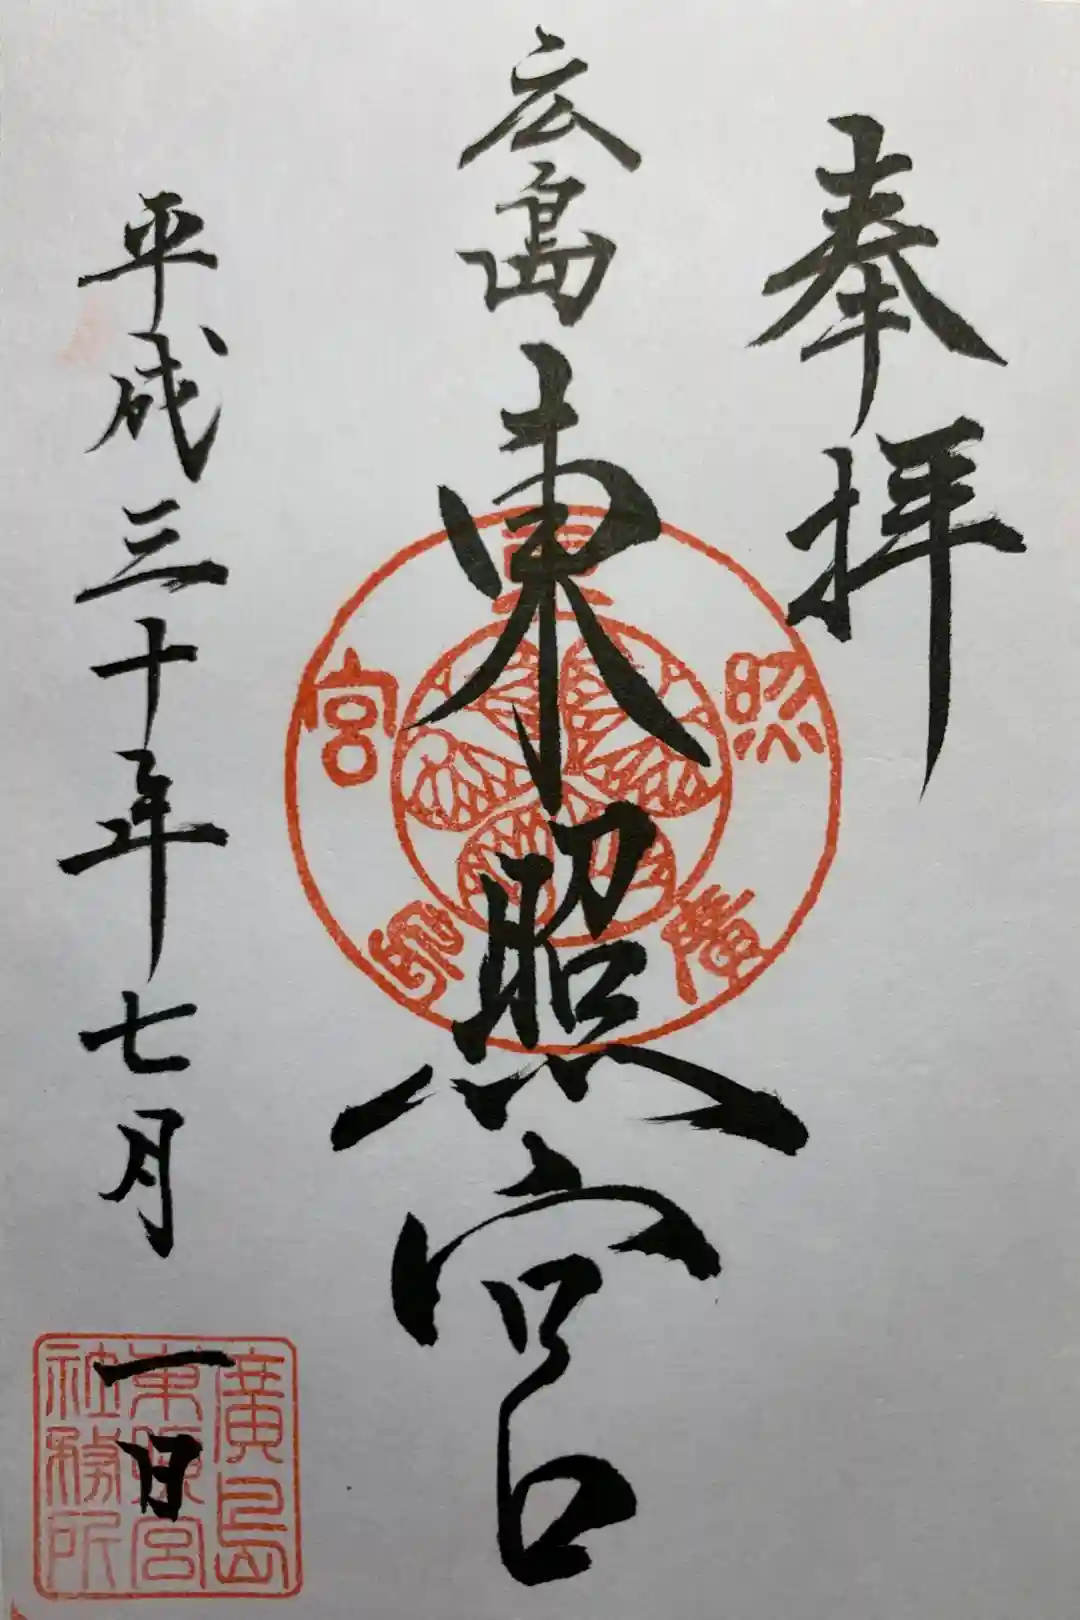 奉拝
広島東照宮
平成三十年七月一日
東照廣島宮
廣島
東照宮
社務所